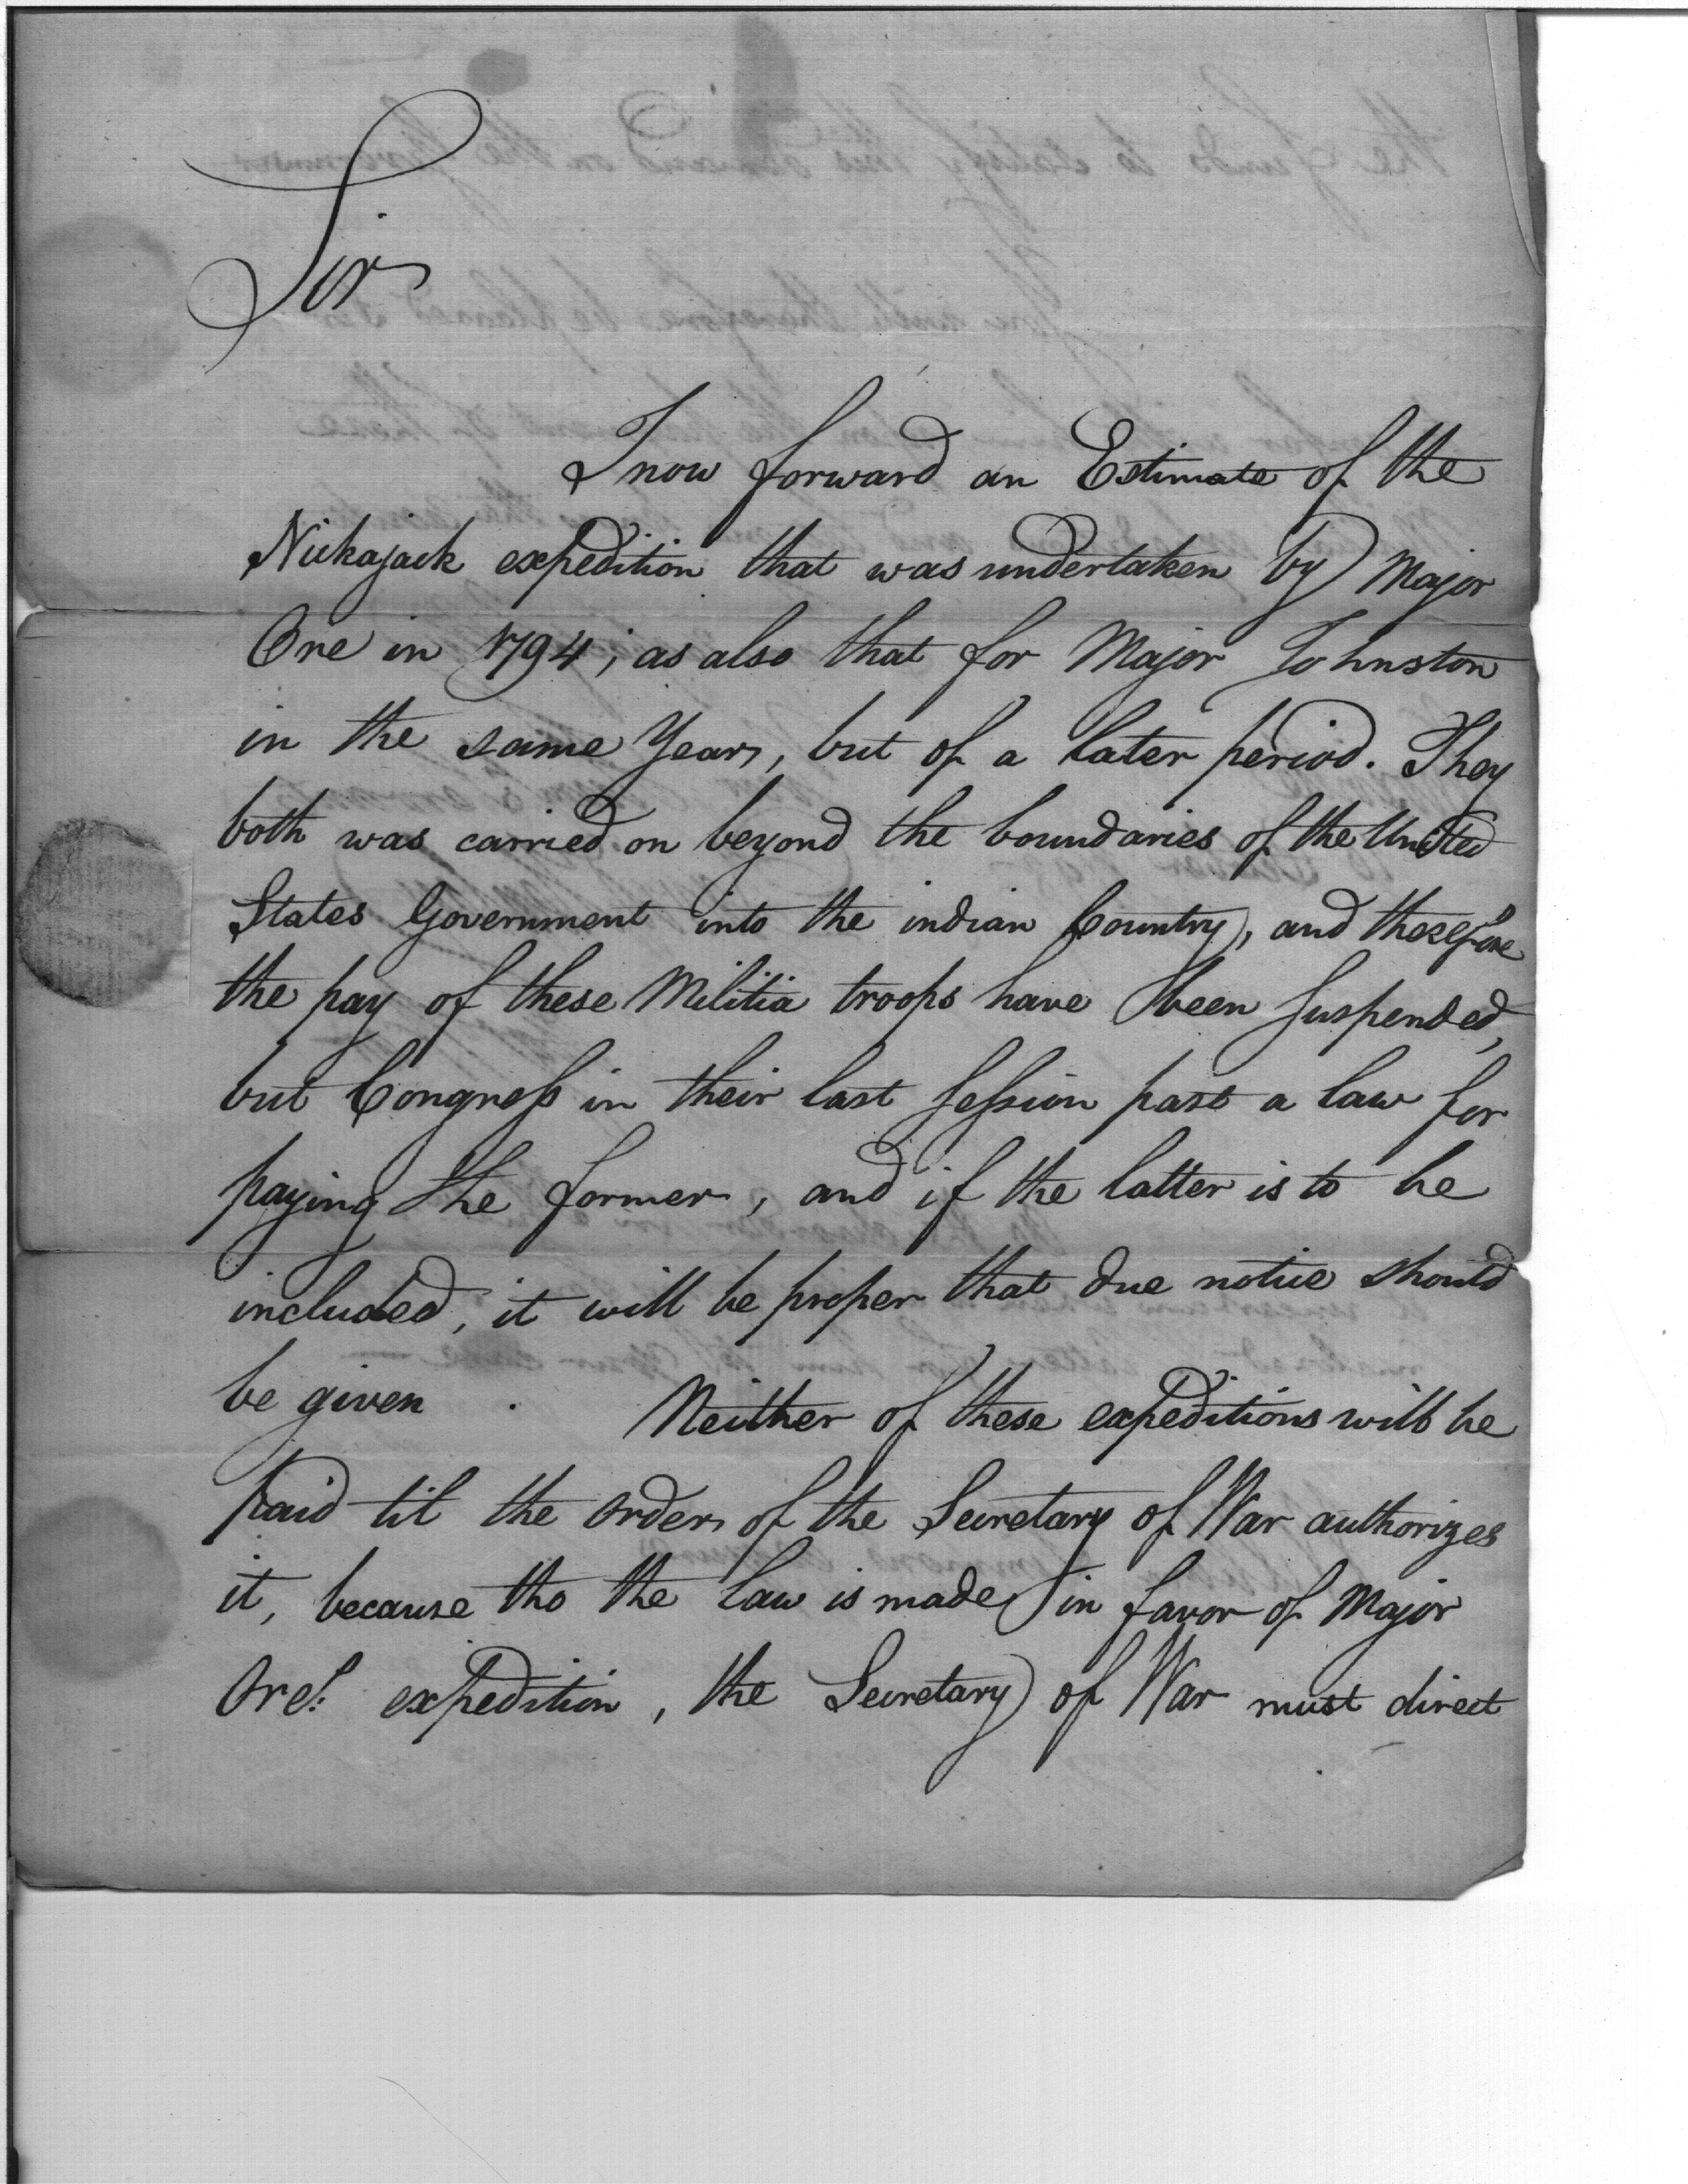 Sir
I now forward an Estimate of the
Nickajack expedition that was undertaken by Major
Ore in 1794; as also that for Major Johnston
in the same Year, but of a later period. They
both was carried on beyond the boundaries of the United
States Government into the indian Country, and therefore
the pay of these Militia troops have been suspended,
but Congress in their last Session past a law for
paying the former, and if the latter is to be
included, it will be proper that due notice should
be given . Neither of these expeditions will be
paid til the order of the Secretary of War authorizes
it, because tho the law is made in favor of Major
Ores expedition, the Secretary of War must direct